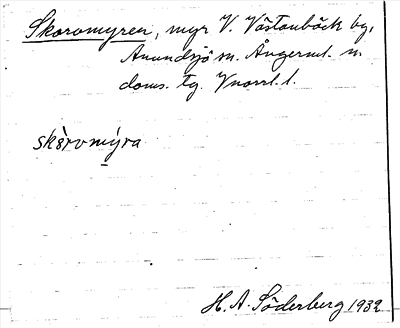 Skoromyren, myr V. Västanbäck by,
Anundsjö sn. Ångerml. n.
doms. tg. Vnorrl. l.
skèrvmýra
H. A. Söderberg 1932